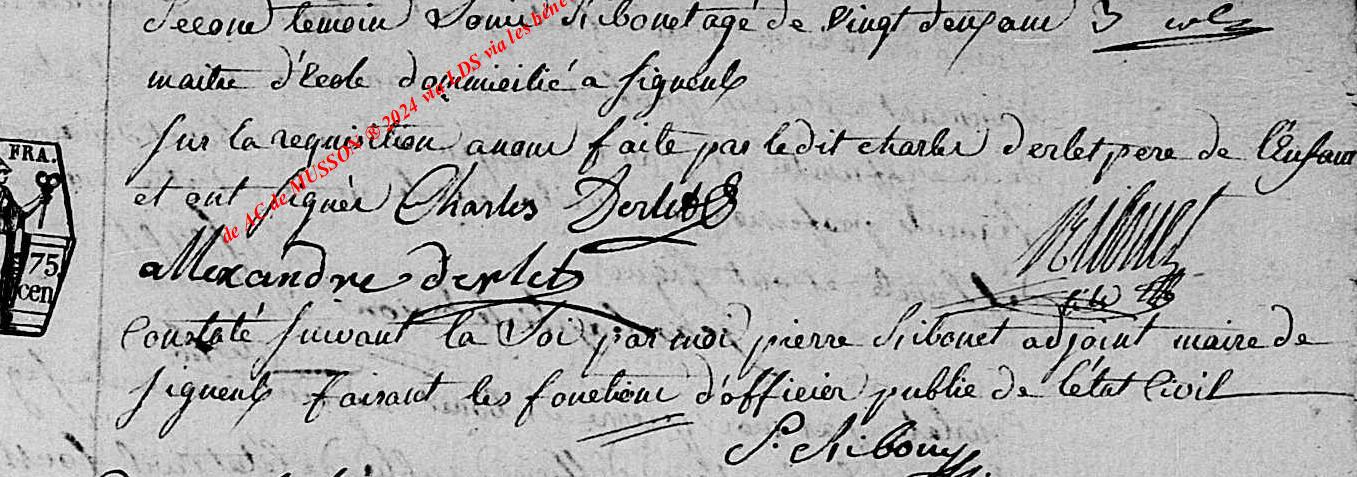 Second temoin Louis Ribonet agé de vingt deux ans
maitre d'Ecole dommicilié a signeulx
sur la requisition a nous faite par ledit charles derlet pere de l'Enfant
FRA.
et ont signés Charles Derlet
Ribonet
75
cen
allexandre derlet
Constaté suivant la Loi par moi pierre Ribonet adjoint maire de
signeulx faisant les fonctions d'officier public de l'état Civil
P. Ribonet
de AC de MUSSON ® 2024 via LDS via les béné